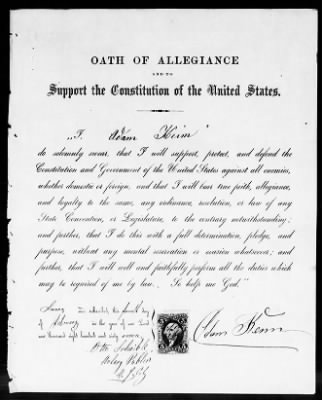 OATH OF ALLEGIANCE
AND TO
Support the Constitution of the United States.
"I, Adam Keim
do solemnly swear, that I will support, protect, and defend the
Constitution and Government of the United States against all enemies,
whether domestic or foreign, and that I will bear true faith, allegiance,
and loyalty to the same, any ordinance, resolution, or law of any
State Convention, or Legislature, to the contrary notwithstanding;
and further, that I do this with a full determination, pledge, and
purpose, without any mental reservation or evasion whatsoever; and
further, that I will well and faithfully perform all the duties which
may be required of me by law. So help me God."
Sworn and subscribed, this day
of in the year of our Lord
one thousand eight hundred and sixty
Otto
Notary Public
N.Y. City
Adam Keim